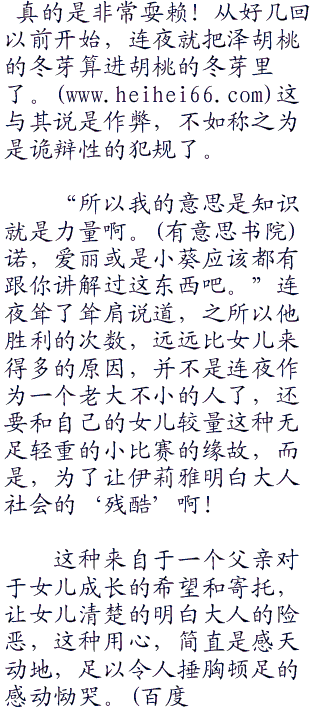 真的是非常耍赖！从好几回
以前开始，连夜就把泽胡桃
的冬芽算进胡桃的冬芽里
了。(www.heihei66.com)这
与其说是作弊，不如称之为
是诡辩性的犯规了。
“所以我的意思是知识
就是力量啊。(有意思书院)
诺，爱丽或是小葵应该都有
跟你讲解过这东西吧。”连
夜耸了耸肩说道，之所以他
胜利的次数，远远比女儿来
得多的原因，并不是连夜作
为一个老大不小的人了，还
要和自己的女儿较量这种无
足轻重的小比赛的缘故，而
是，为了让伊莉雅明白大人
社会的‘残酷’啊！
这种来自于一个父亲对
于女儿成长的希望和寄托，
让女儿清楚的明白大人的险
恶，这种用心，简直是感天
动地，足以令人捶胸顿足的
感动恸哭。(百度